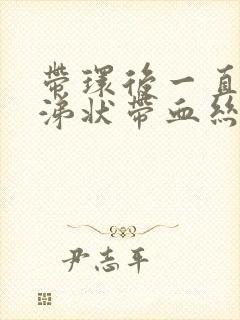 帶環後一直
涕狀帶血絲
尹志平